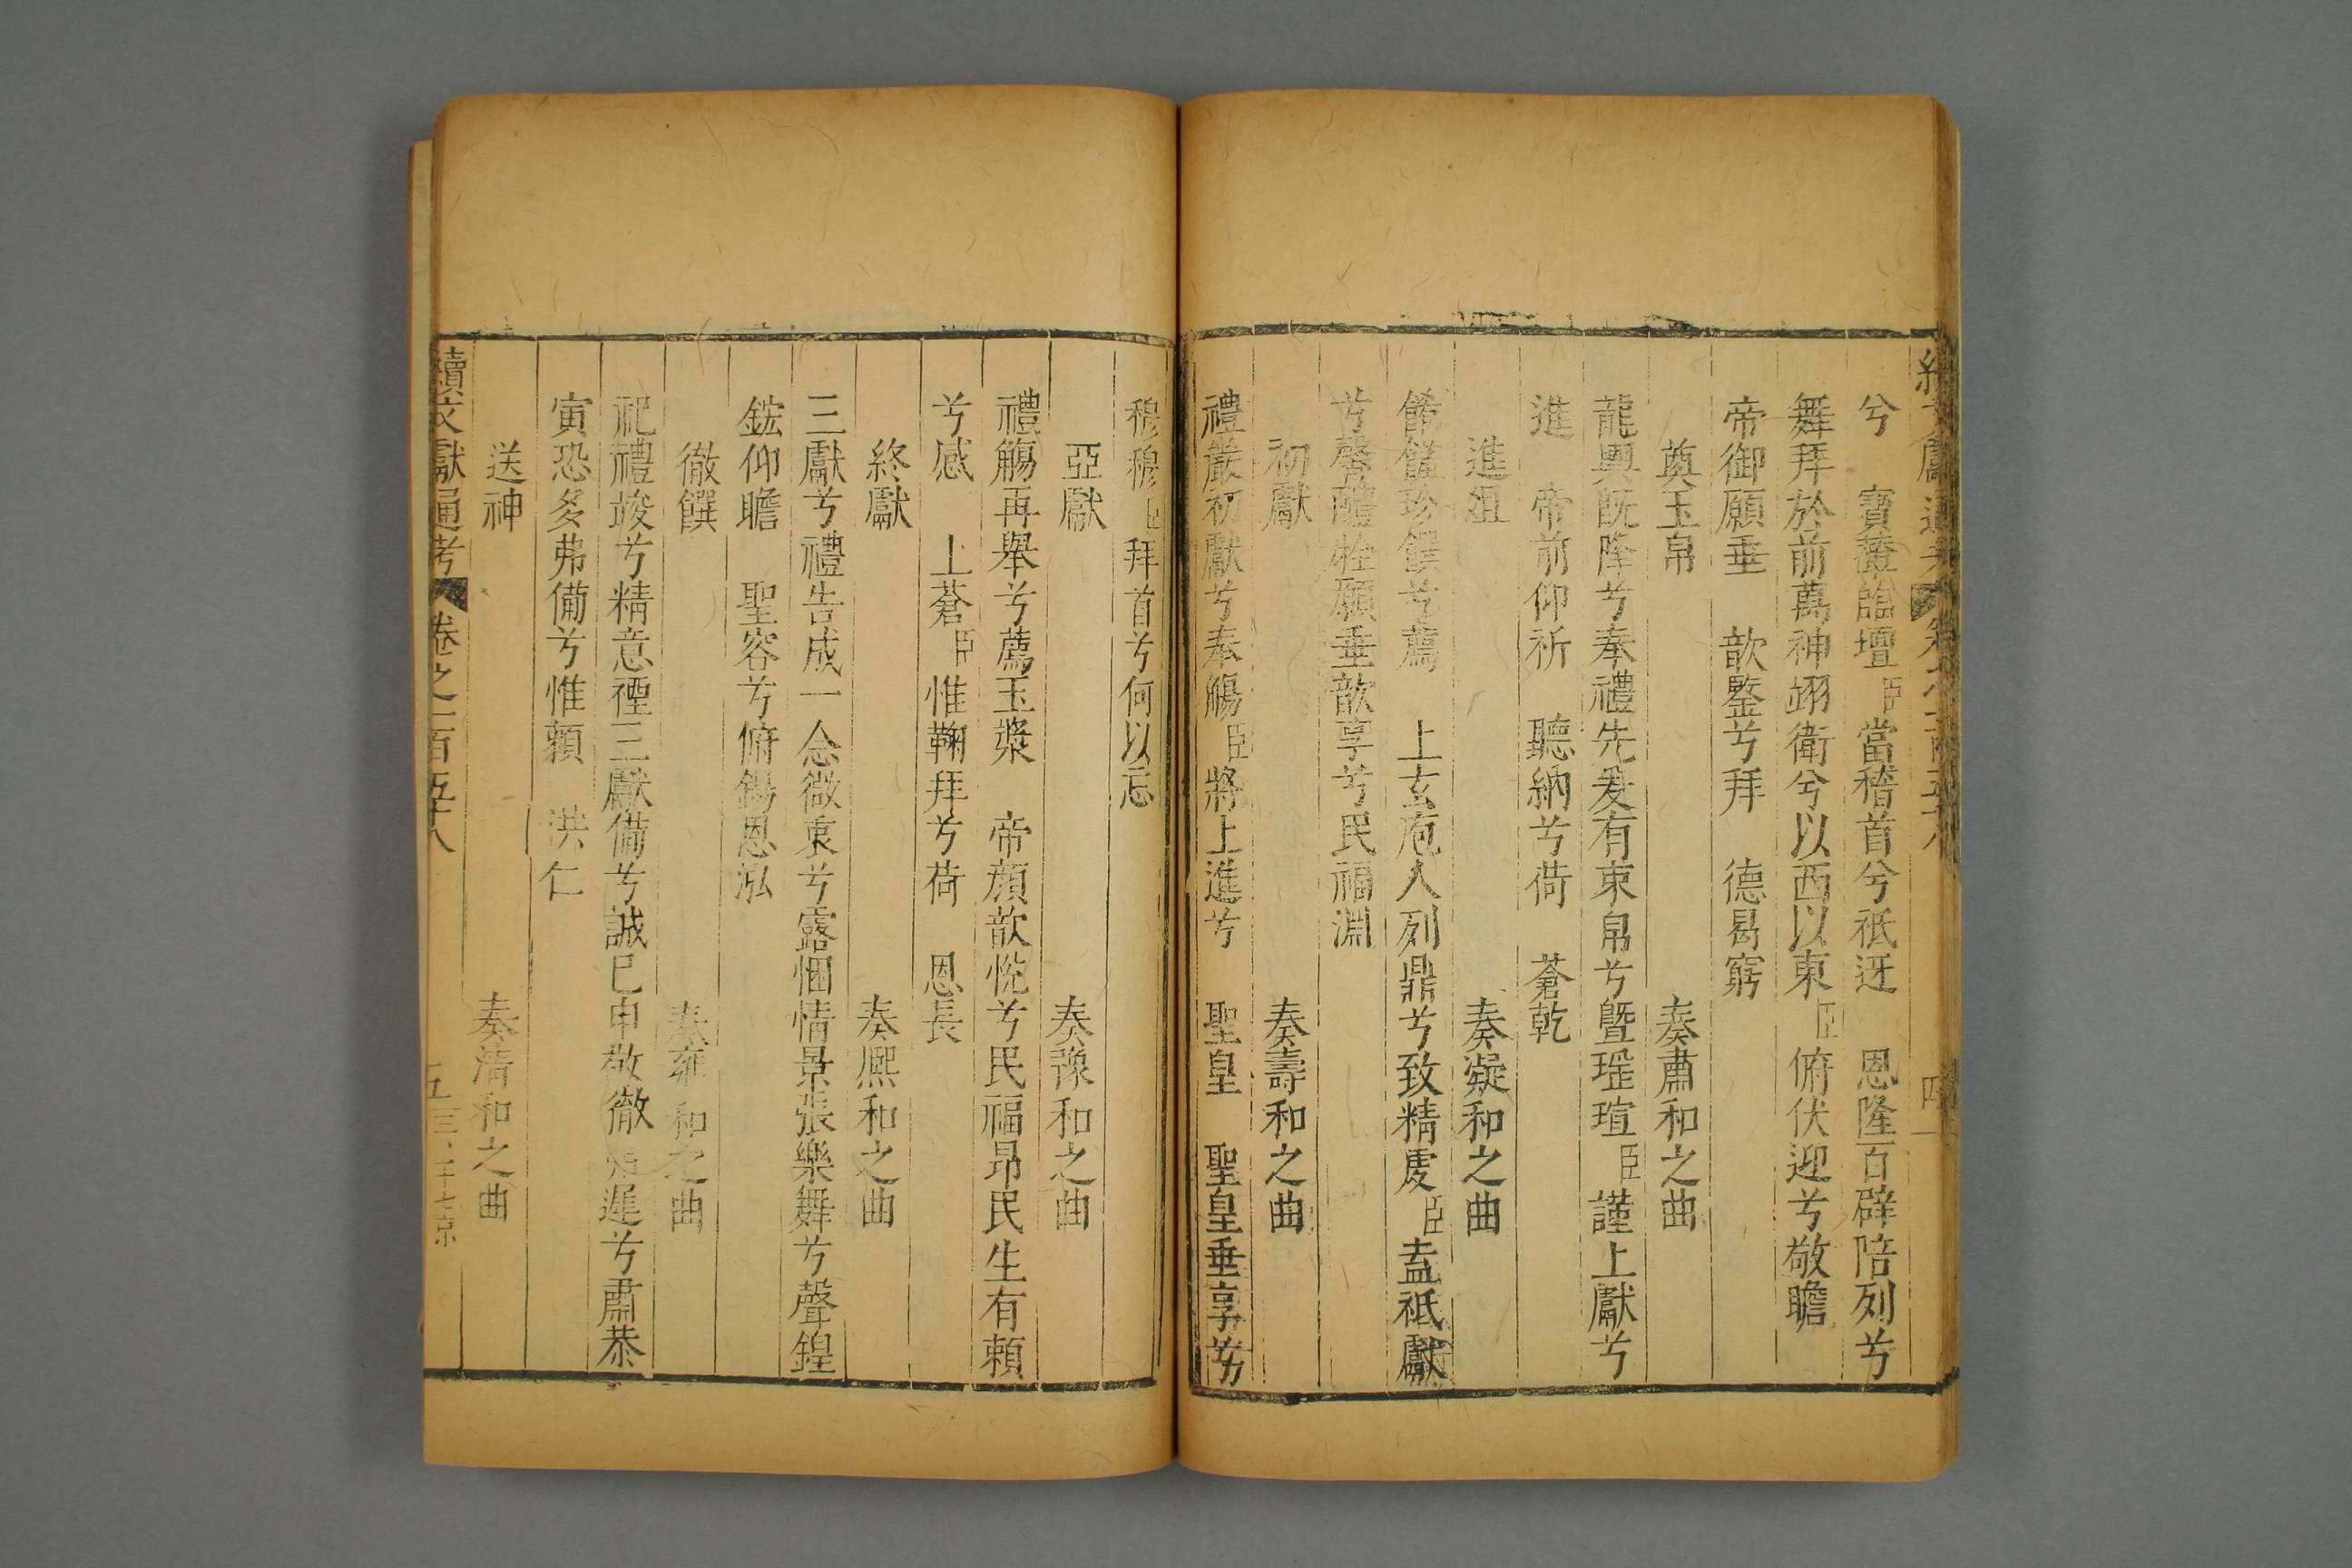 兮 寶輦臨壇臣當稽首兮祇迓 恩隆百辟陪列兮
舞拜於前萬神翊衛兮以西以東臣俯伏迎兮敬瞻
帝御願垂 歆鑒兮拜 德曷窮
奠玉帛 奏肅和之曲
龍輿旣降兮奉禮先爰有束帛兮暨瑤瑄臣謹上獻兮
進 帝前仰祈 聽納兮荷 蒼乾
進俎 奏凝和之曲
殽饈珍饌兮薦 上玄庖人列鼎兮致精虔臣盍祇獻
兮馨醴牲願垂歆享兮民福淵
初獻 奏壽和之曲
禮嚴初獻兮奉觴臣將上進兮 聖皇 聖皇垂享兮
穆穆臣拜首兮何以忘
亞獻 奏豫和之曲
禮觴再舉兮薦玉漿 帝顏歆悅兮民福昂民生有賴
兮感 上蒼臣惟鞠拜兮荷 恩長
終獻 奏熈和之曲
三獻兮禮告成一念微衷兮露悃情景張樂舞兮聲鍠
鋐仰瞻 聖容兮俯錫恩泓
徹饌 奏雍和之曲
祀禮竣兮精意禋三獻備兮誠已申敬徹 遲兮肅恭
寅恐多弗備兮惟賴 洪仁
送神 奏清和之曲
續文獻通考 卷之一百五十八 五